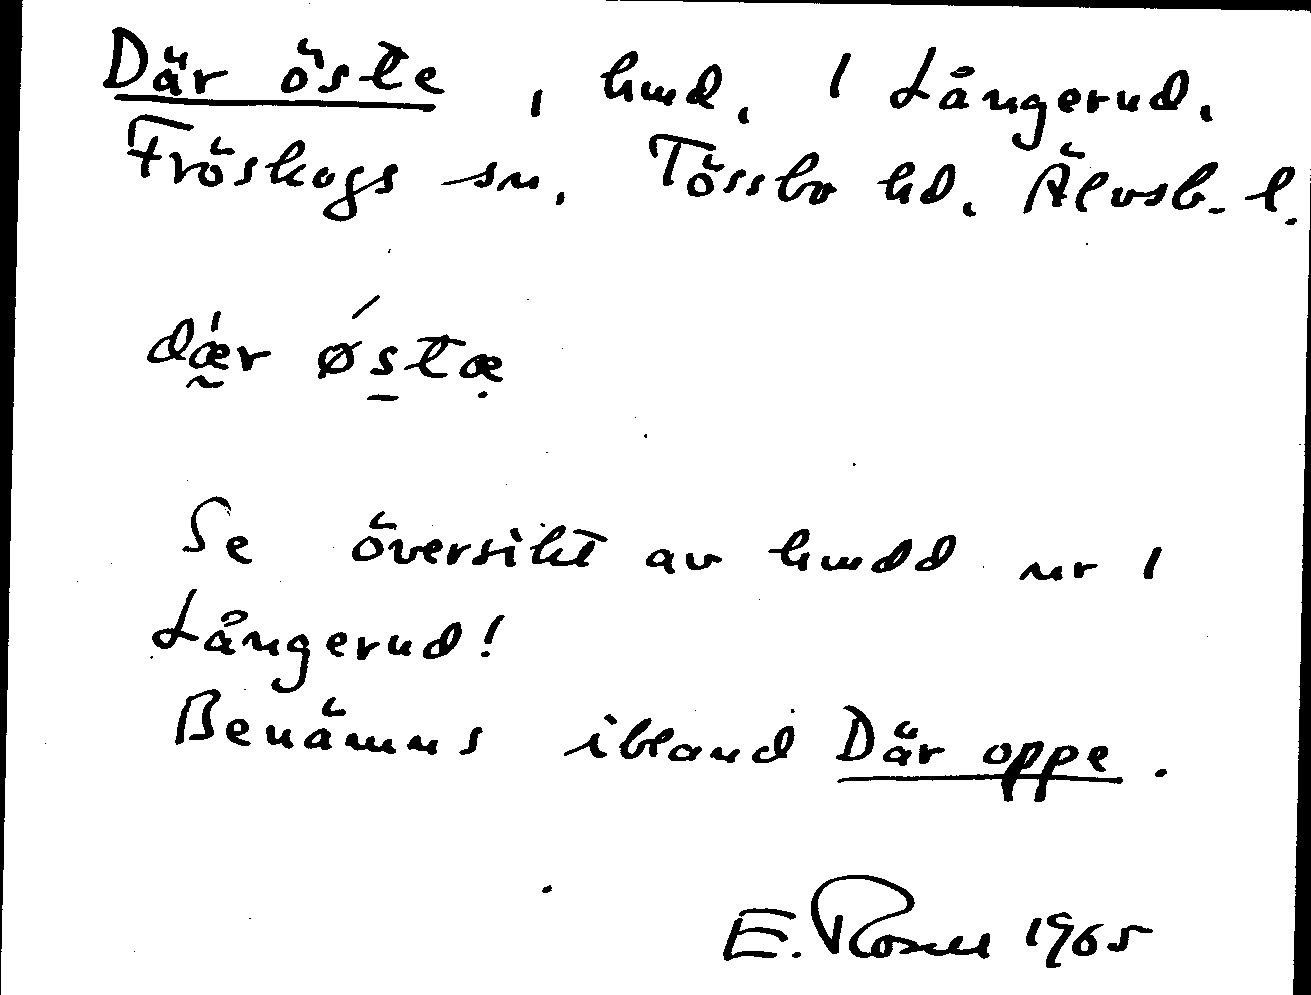 Där öste, hmd, 1 Långerud,
Fröskogs sn, Tössbo hd, Älvsb. l.
dær østæ
Se översikt av hmdd nr 1
Långerud!
Benämns ibland Där oppe.
E. Rosell 1965